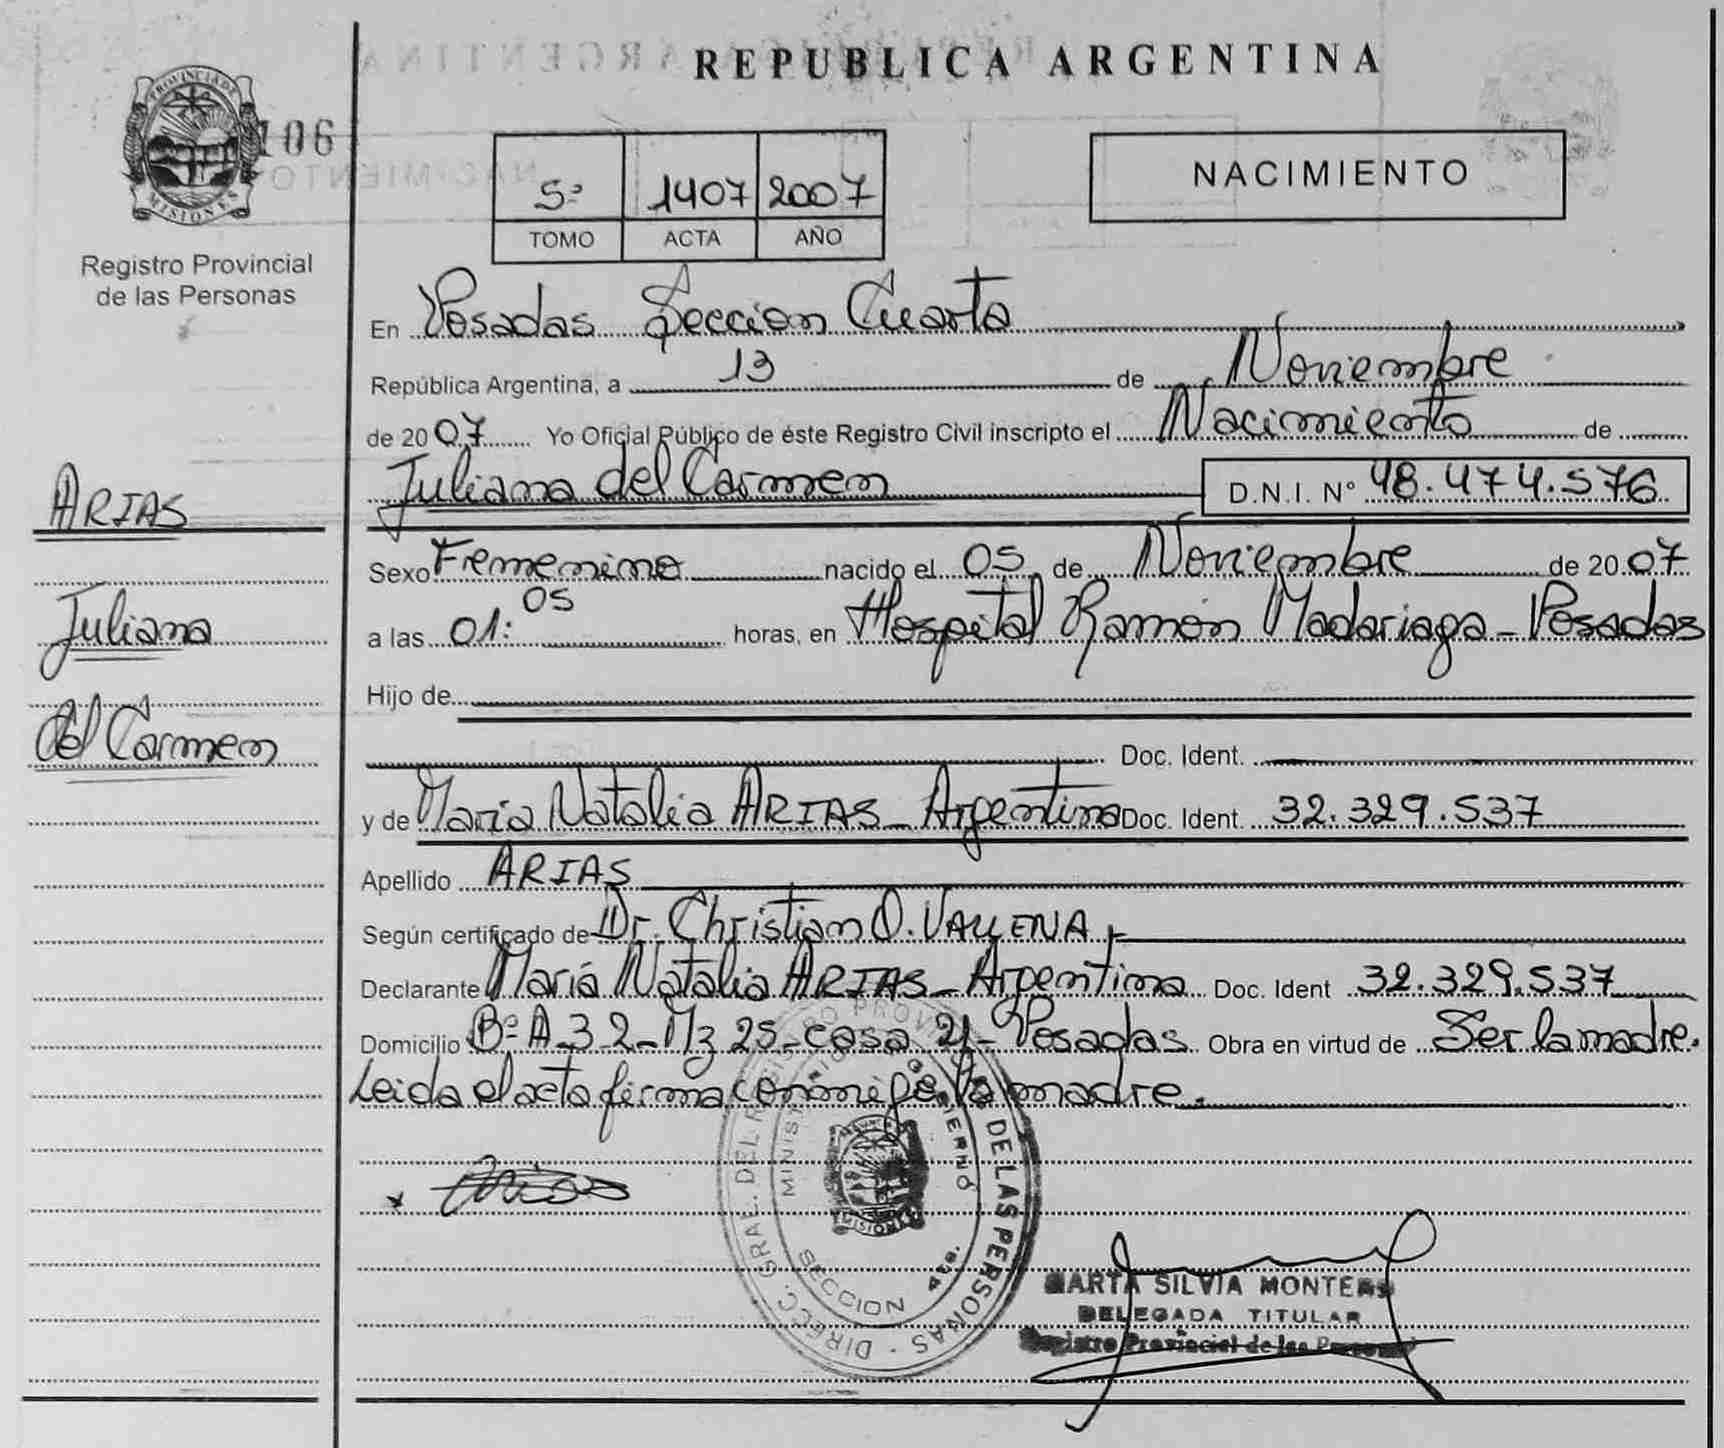 REPUBLICA ARGENTINA
PROVINCIA DE MISIONES
106
Registro Provincial
de las Personas
5ª 1407 2007
TOMO ACTA AÑO
NACIMIENTO
En Posadas Seccion Cuarta
República Argentina, a 13 de Noviembre
de 2007 Yo Oficial Público de éste Registro Civil inscripto el Nacimiento de
Juliana del Carmen D.N.I. Nº 48.474.576
ARIAS
Juliana
del Carmen
Sexo Femenino nacido el 05 de Noviembre de 2007
a las 01:05 horas, en Hospital Ramón Madariaga - Posadas
Hijo de
Doc. Ident.
y de María Natalia ARIAS - Argentina Doc. Ident. 32.329.537
Apellido ARIAS
Según certificado de Dr. Christian O. VALLENA
Declarante María Natalia ARIAS - Argentina Doc. Ident 32.329.537
Domicilio Bº A-3-2 - Mz 25 - casa 21 - Posadas Obra en virtud de Ser la madre.
Leida el acta firma conmigo la madre.
DIREC. GRAL. DEL REGISTRO PROV. DE LAS PERSONAS
GOBIERNO
SECCION 4ta.
MISIONES
MARTA SILVIA MONTERO
DELEGADA TITULAR
Registro Provincial de las Personas